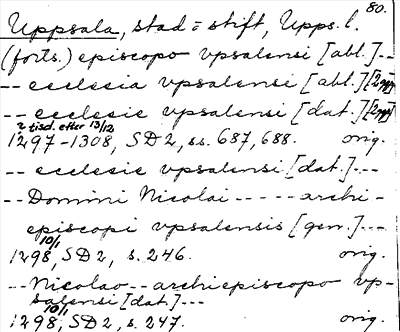 80.
Uppsala, stad o stift, Upps. l.
(forts.) episcopo vpsalensi [abl.]--
-- ecclesia vpsalensi [abl.] [2 ggr]
-- ecclesie vpsalensi [dat.] [2 ggr]
2 tisd. efter 13/12
1297-1308, SD 2, ss. 687, 688. orig.
-- ecclesie vpsalensi [dat.]---
-- Domini Nicolai ----- archi-
episcopi vpsalensis [gen.]---
10/1
1298, SD 2, s. 246. orig.
-- Nicolao -- archiepiscopo vp-
salensi [dat.]---
10/1
1298, SD 2, s. 247. orig.